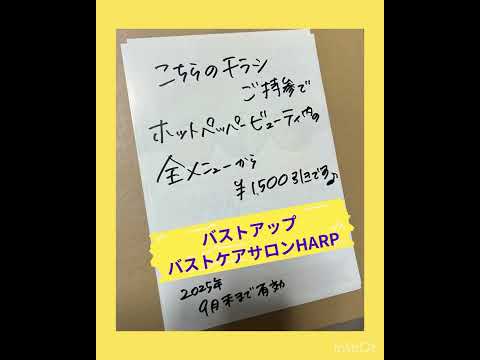 こちらのチラシ
ご持参で
ホットペッパービューティ内の
全メニューから
¥1,500引きです♪
バストアップ
バストケアサロンHARP
2025年
9月末まで有効